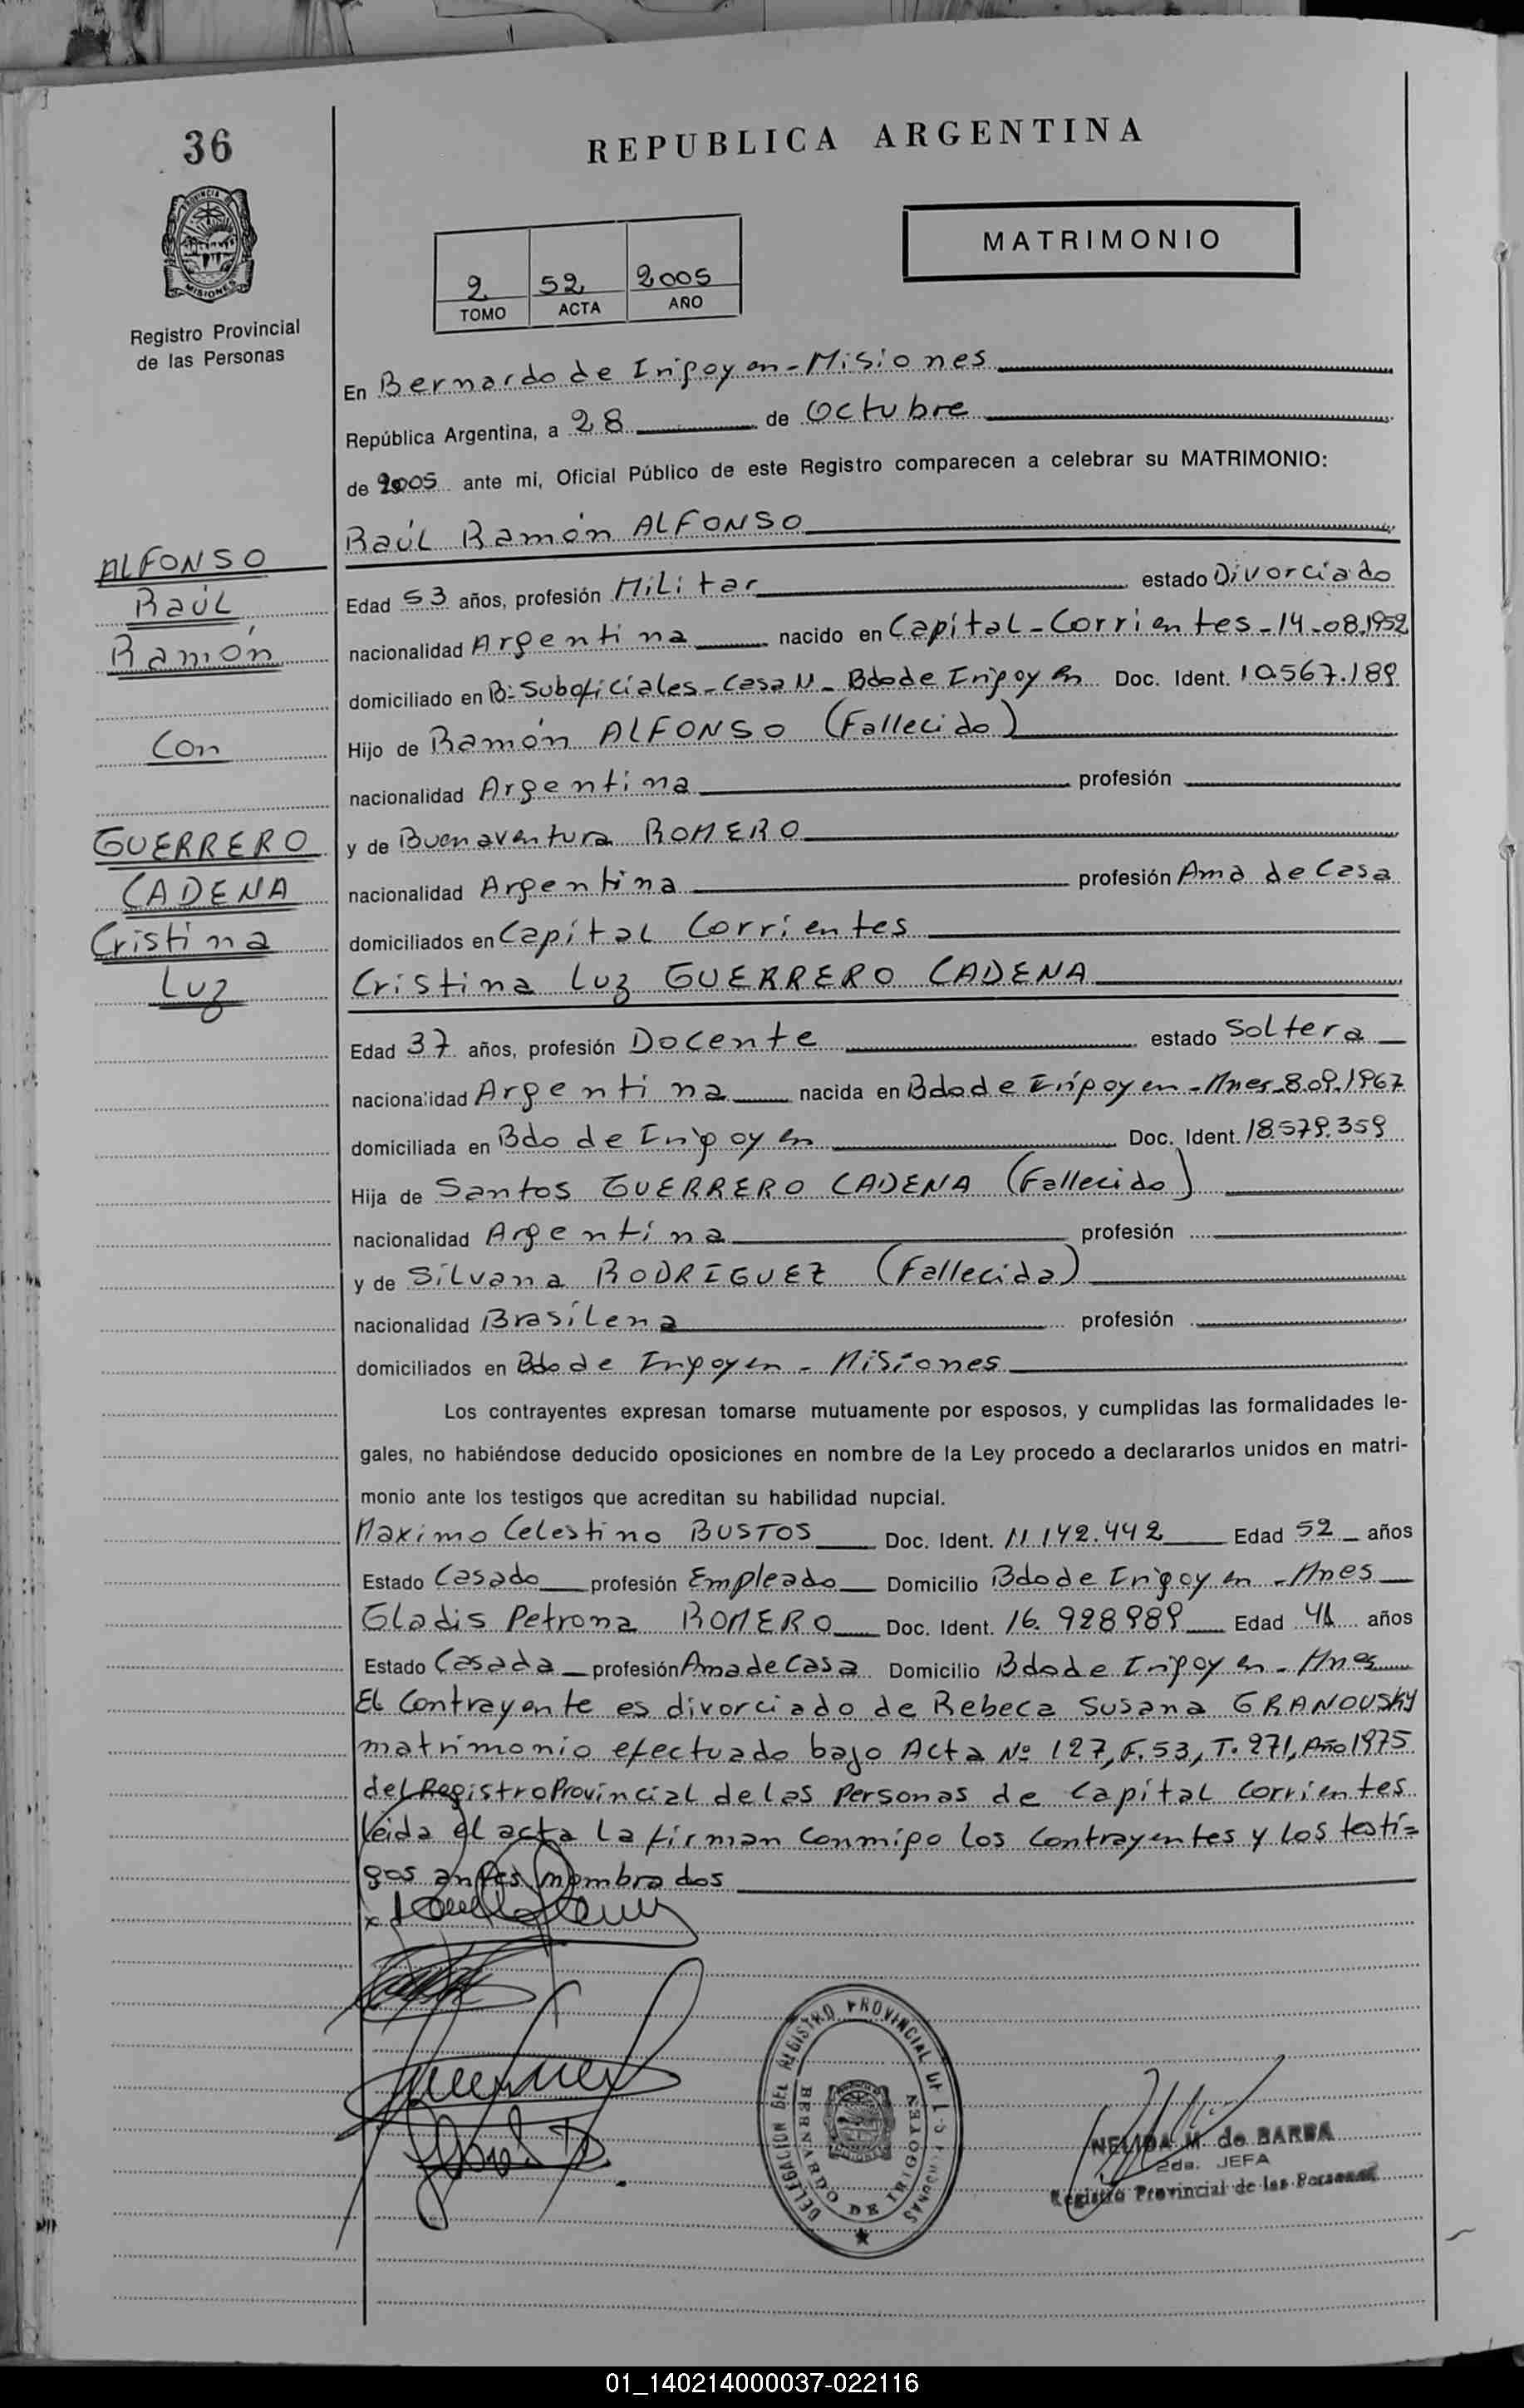 36
REPUBLICA ARGENTINA
PROVINCIA DE
MISIONES
MATRIMONIO
2 52 2005
TOMO ACTA AÑO
Registro Provincial
de las Personas
En Bernardo de Irigoyen - Misiones
República Argentina, a 28 de Octubre
de 2005 ante mi, Oficial Público de este Registro comparecen a celebrar su MATRIMONIO:
Raúl Ramón ALFONSO
ALFONSO
Raúl
Ramón
Con
GUERRERO
CADENA
Cristina
Luz
Edad 53 años, profesión Militar estado Divorciado
nacionalidad Argentina nacido en Capital - Corrientes - 14-08.1952
domiciliado en Bº Suboficiales - Casa 11 - Bdo de Irigoyen Doc. Ident. 10.567.189
Hijo de Ramón ALFONSO (Fallecido)
nacionalidad Argentina profesión
y de Buenaventura ROMERO
nacionalidad Argentina profesión Ama de Casa
domiciliados en Capital Corrientes
Cristina Luz GUERRERO CADENA
Edad 37 años, profesión Docente estado Soltera
nacionalidad Argentina nacida en Bdo de Irigoyen - Mnes - 8.09.1967
domiciliada en Bdo de Irigoyen Doc. Ident. 18.579.359
Hija de Santos GUERRERO CADENA (Fallecido)
nacionalidad Argentina profesión
y de Silvana RODRIGUEZ (Fallecida)
nacionalidad Brasilena profesión
domiciliados en Bdo de Irigoyen - Misiones
Los contrayentes expresan tomarse mutuamente por esposos, y cumplidas las formalidades le-
gales, no habiéndose deducido oposiciones en nombre de la Ley procedo a declararlos unidos en matri-
monio ante los testigos que acreditan su habilidad nupcial.
Maximo Celestino BUSTOS Doc. Ident. 11.142.442 Edad 52 años
Estado Casado profesión Empleado Domicilio Bdo de Irigoyen - Mnes
Gladis Petrona ROMERO Doc. Ident. 16.928989 Edad 41 años
Estado Casada profesión Ama de Casa Domicilio Bdo de Irigoyen - Mnes
El Contrayente es divorciado de Rebeca Susana GRANOUSKY
matrimonio efectuado bajo Acta Nº 127, F. 53, T. 271, Año 1975
del Registro Provincial de las Personas de Capital Corrientes
Leida el acta la firman conmigo los contrayentes y los testi=
gos antes nombrados
DELEGACION DEL REGISTRO PROVINCIAL DE LAS PERSONAS
BERNARDO DE IRIGOYEN
NELIDA M. de BARBA
2da. JEFA
Registro Provincial de las Personas
01_140214000037-022116